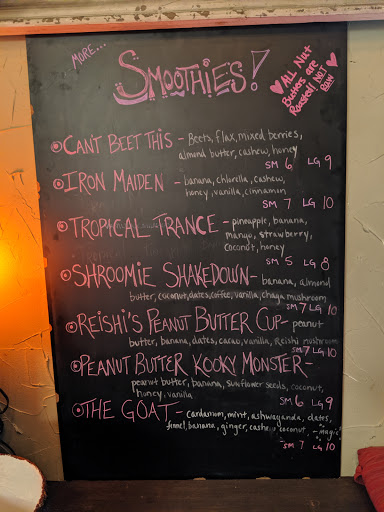 more...
SMOOTHIES!
ALL Nut
Butters are
Roasted! NOT
RAW
CANT BEET THIS - Beets, flax, mixed berries,
almond butter, cashew, honey
SM 6 LG 9
IRON MAIDEN - banana, chlorella, cashew,
honey, vanilla, cinnamon
SM 7 LG 10
TROPICAL TRANCE - pineapple, banana,
mango, strawberry,
coconut, honey
SM 5 LG 8
SHROOMIE SHAKEDOWN - banana, almond
butter, coconut, dates, coffee, vanilla, chaga mushroom
SM 7 LG 10
REISHI'S PEANUT BUTTER CUP - peanut
butter, banana, dates, cacao, vanilla, Reishi mushroom
SM 7 LG 10
PEANUT BUTTER KOOKY MONSTER -
peanut butter, banana, sunflower seeds, coconut,
honey, vanilla
SM 6 LG 9
THE GOAT - cardamom, mint, ashwaganda, dates,
fennel, banana, ginger, cashew, coconut, - magic!
SM 7 LG 10